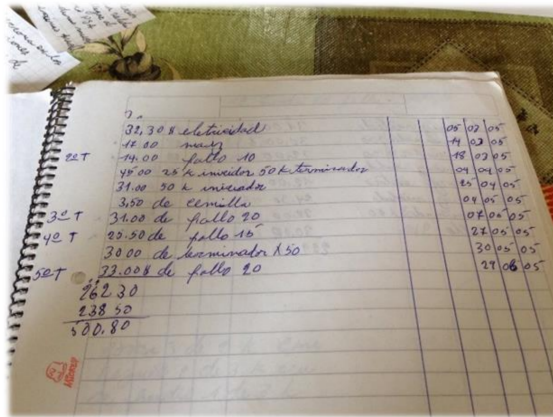 32,30 $ eletricidad 05 03 05
17.00 maiz 14 03 05
2º T 14.00 pollo 10 18 03 05
45.00 25 k iniciador 50 k terminador 04 04 05
31.00 50 k iniciador 25 04 05
3,50 de cemilla 04 05 05
3º T 31.00 de pollo 20 07 05 05
4º T 25.50 de pollo 15 27 05 05
30 00 de terminador X 50 30 05 05
5º T 33.00$ de pollo 20 29 06 05
262 30
238 50
500,80